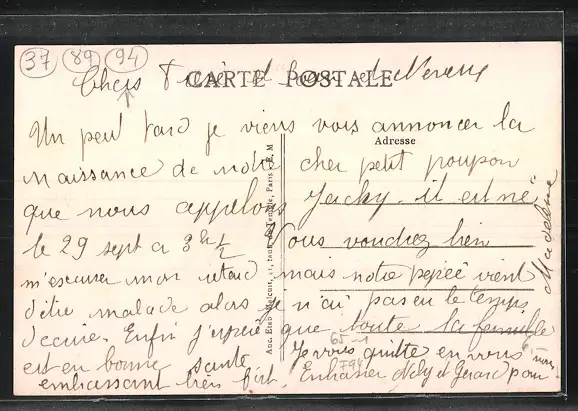 37 89 94
Chers et Neveux
CARTE POSTALE
Un peu tard je viens vous annoncer la
Adresse
naissance de notre cher petit poupon
que nous appelons Jacky. il est né
le 29 sept a 3h 1/2 Vous voudrez bien
m'escuser mon retard mais notre vient
d'être malade alors je n'ai pas eu le temps
decrire. Enfin j'espère que toute la famille
est en bonne santé Je vous quitte en vous
embrassant bien fort. Embrasser Nely et Gerard pour
nous
Madeleine